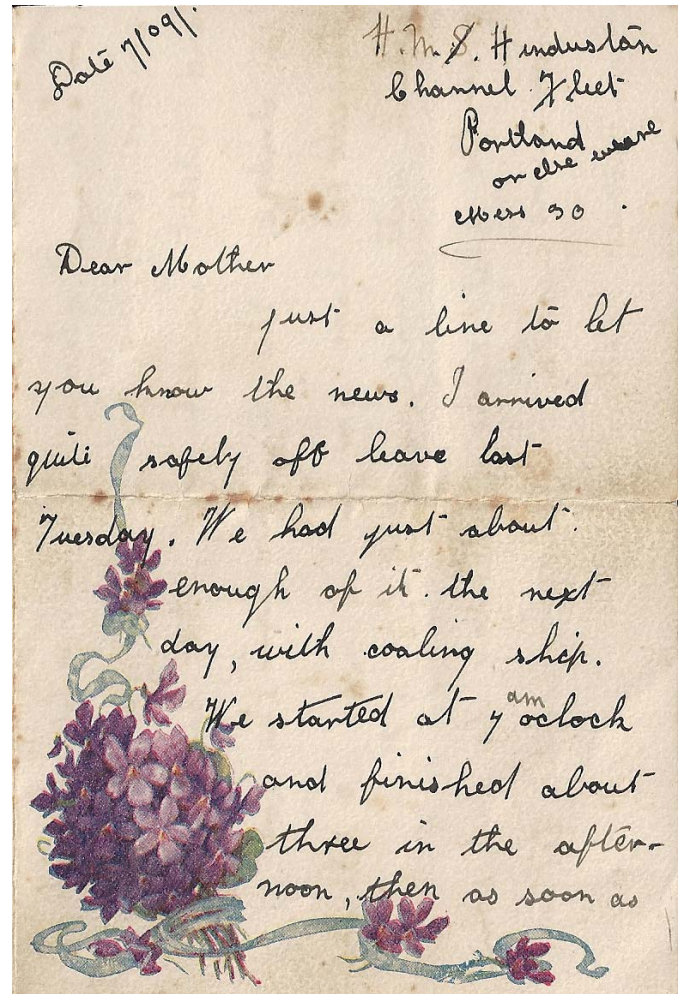 Date 7/09/.
H.M.S. Hindustan
Channel Fleet
Portland
or else weare
Mess 30.
Dear Mother
just a line to let
you know the news. I arrived
quite safely off leave last
Tuesday. We had just about
enough of it the next
day, with coaling ship.
We started at 7 am oclock
and finished about
three in the after-
noon, then as soon as